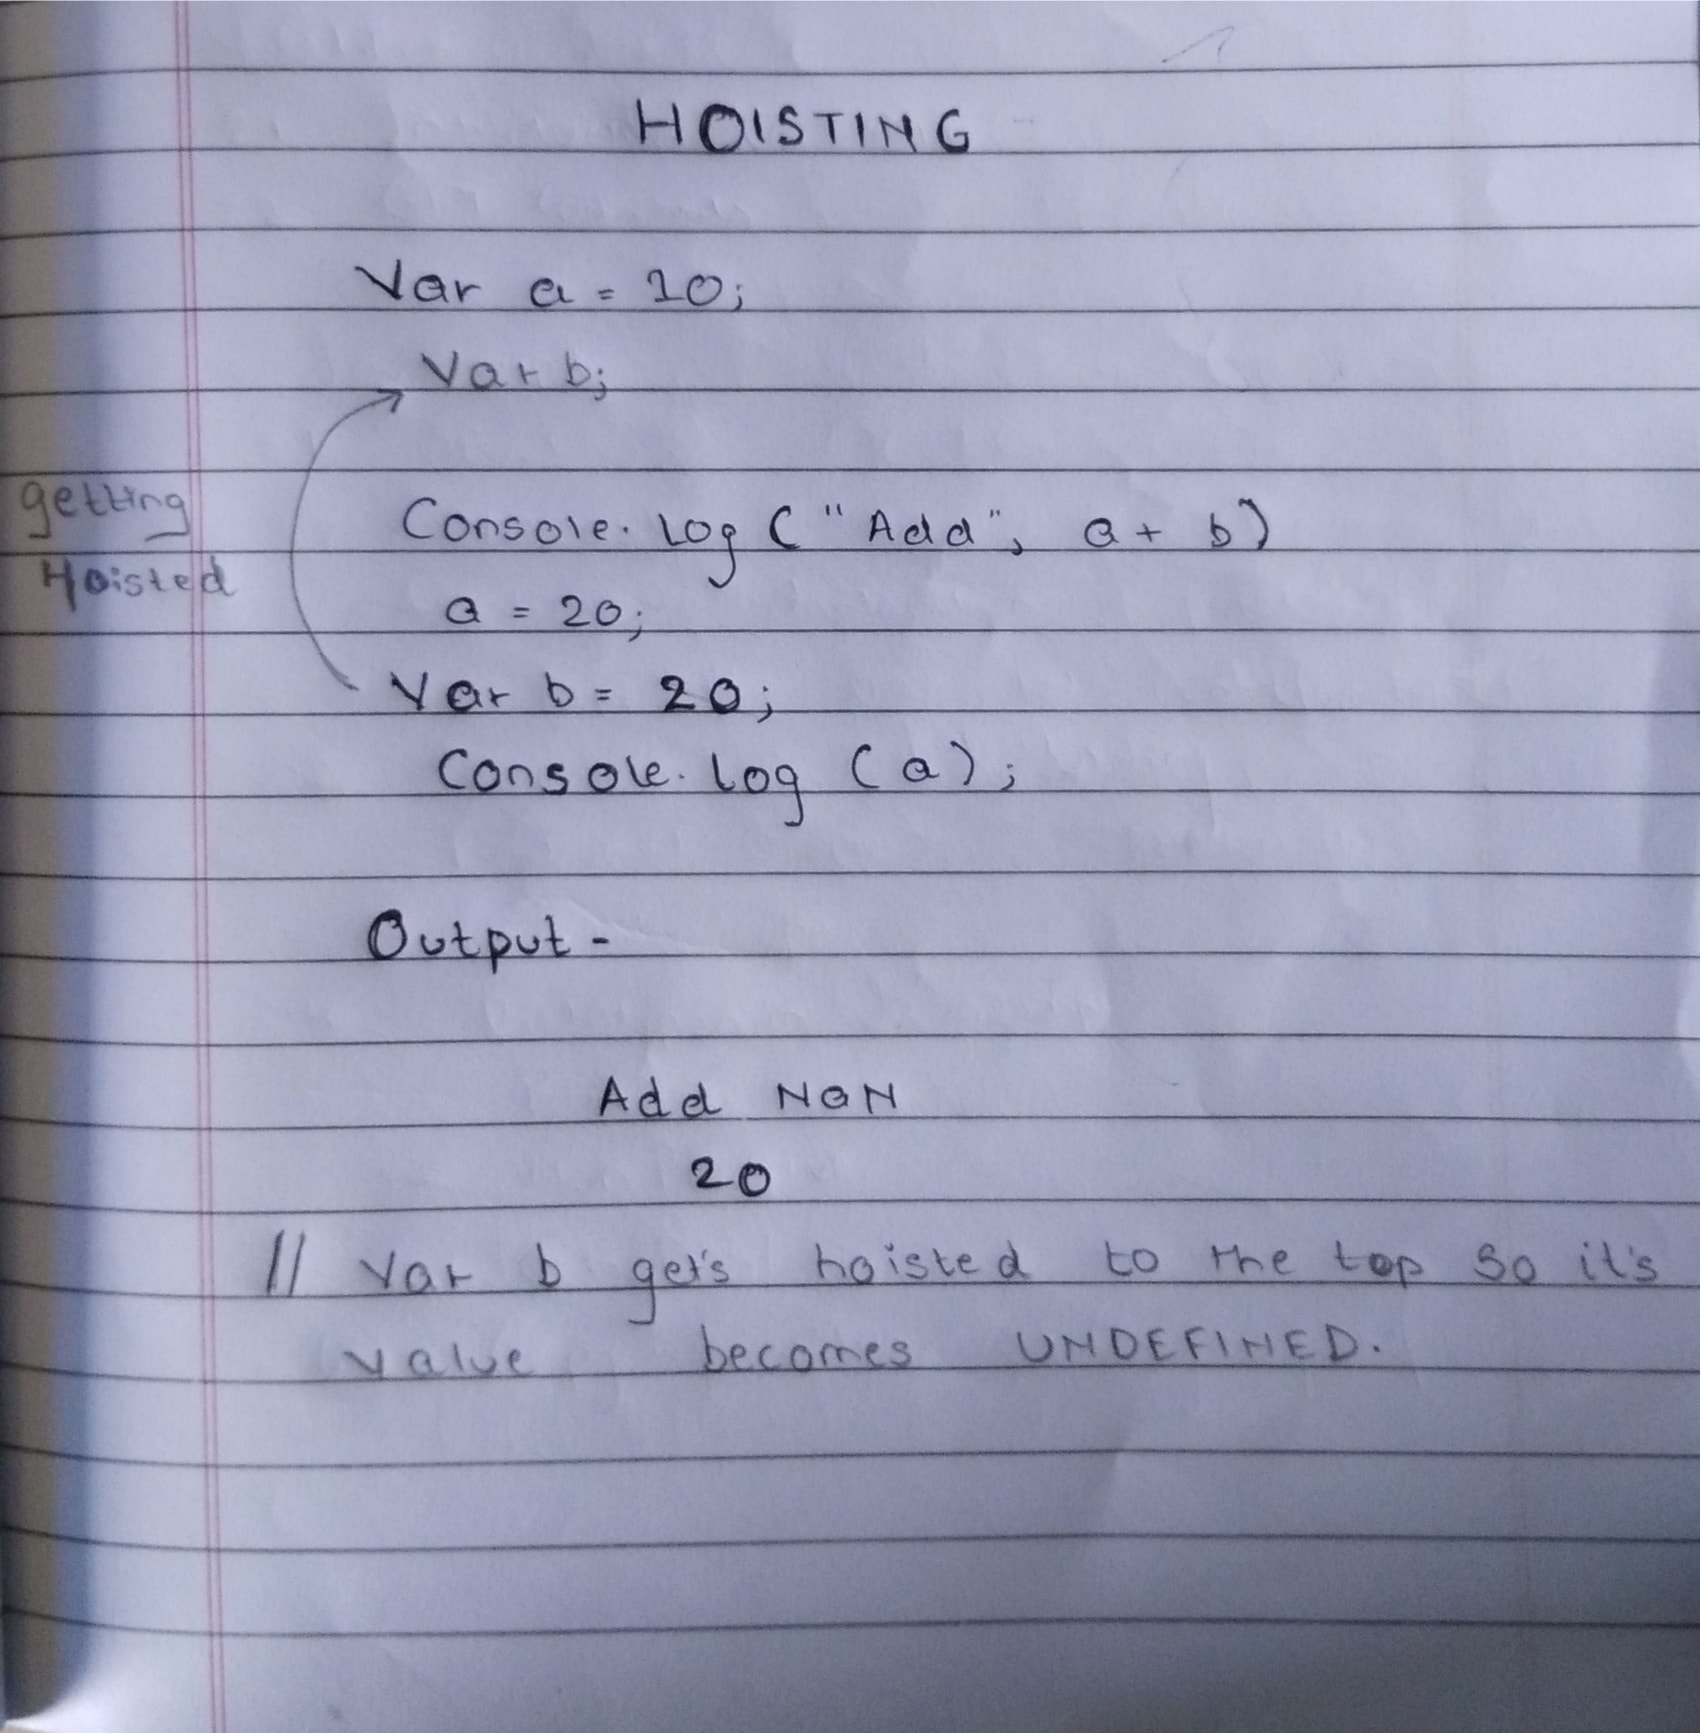 HOISTING
Var a = 10;
Var b;
getting
Hoisted
Console. Log ( "Add", a + b)
a = 20;
Var b = 20;
Console. log (a);
Output -
Add NaN
20
// Var b get's hoisted to the top so it's
value becomes UNDEFINED.